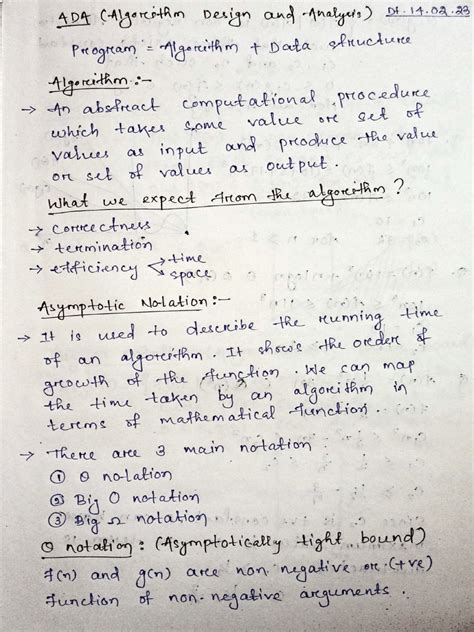 ADA (Algorithm Design and Analysis) Dt. 14.02.23
Program = Algorithm + Data structure
Algorithm :-
→ An abstract computational procedure
which takes some value or set of
values as input and produce the value
or set of values as output.
What we expect from the algorithm ?
→ Correctness
→ termination
→ efficiency → time
→ space
Asymptotic Notation :-
→ It is used to describe the running time
of an algorithm. It shows the order of
growth of the function. We can map
the time taken by an algorithm in
terms of mathematical function.
→ There are 3 main notation.
① θ notation
② Big O notation
③ Big Ω notation
θ notation : (Asymptotically tight bound)
f(n) and g(n) are non negative or (+ve)
function of non-negative arguments.